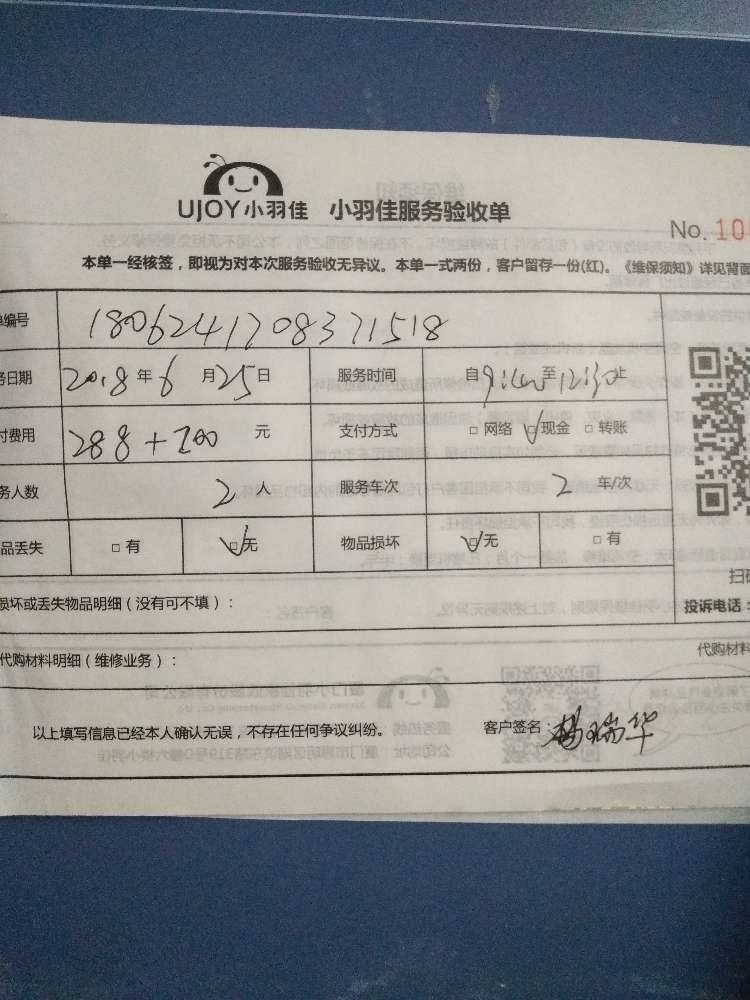 UJOY小羽佳 小羽佳服务验收单
No.10
本单一经核签，即视为对本次服务验收无异议。本单一式两份，客户留存一份(红)。《维保须知》详见背面
单编号 1806241708371518
务日期 2018年6月25日 服务时间 自9:00至12:30止
付费用 288+200元 支付方式 □ 网络 ☑现金 □ 转账
务人数 2人 服务车次 2车/次
品丢失 □ 有 ☑无 物品损坏 ☑无 □ 有
扫码
损坏或丢失物品明细（没有可不填）：
投诉电话：
代购材料明细（维修业务）：
代购材料
以上填写信息已经本人确认无误，不存在任何争议纠纷。 客户签名：杨瑞华